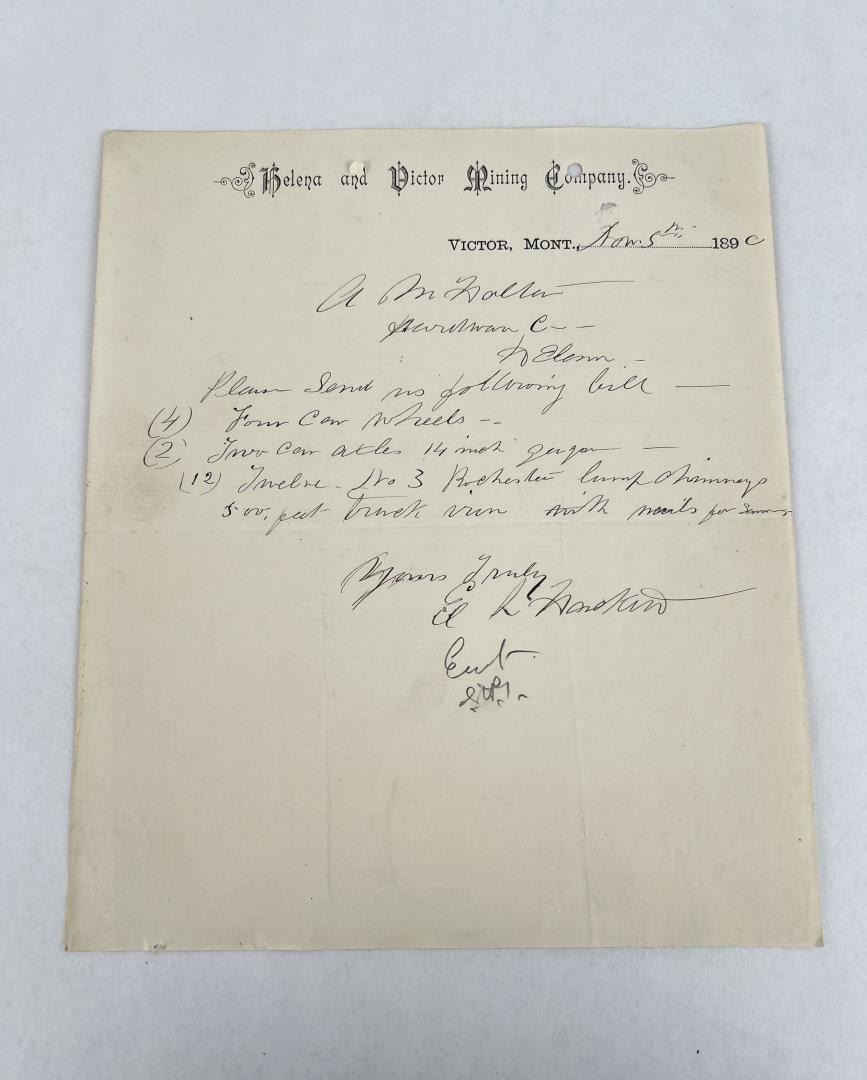 Helena and Victor Mining Company.
VICTOR, MONT., Nov. 5th 1890
A M Holter
Hardware C--
Helena -
Please Send us following bill —
(4) Four Car wheels --
(2) Two Car axles 14 inch —
(12) Twelve - No 3 Rochester lamp chimneys
500, feet track iron with nails for
Yours Truly